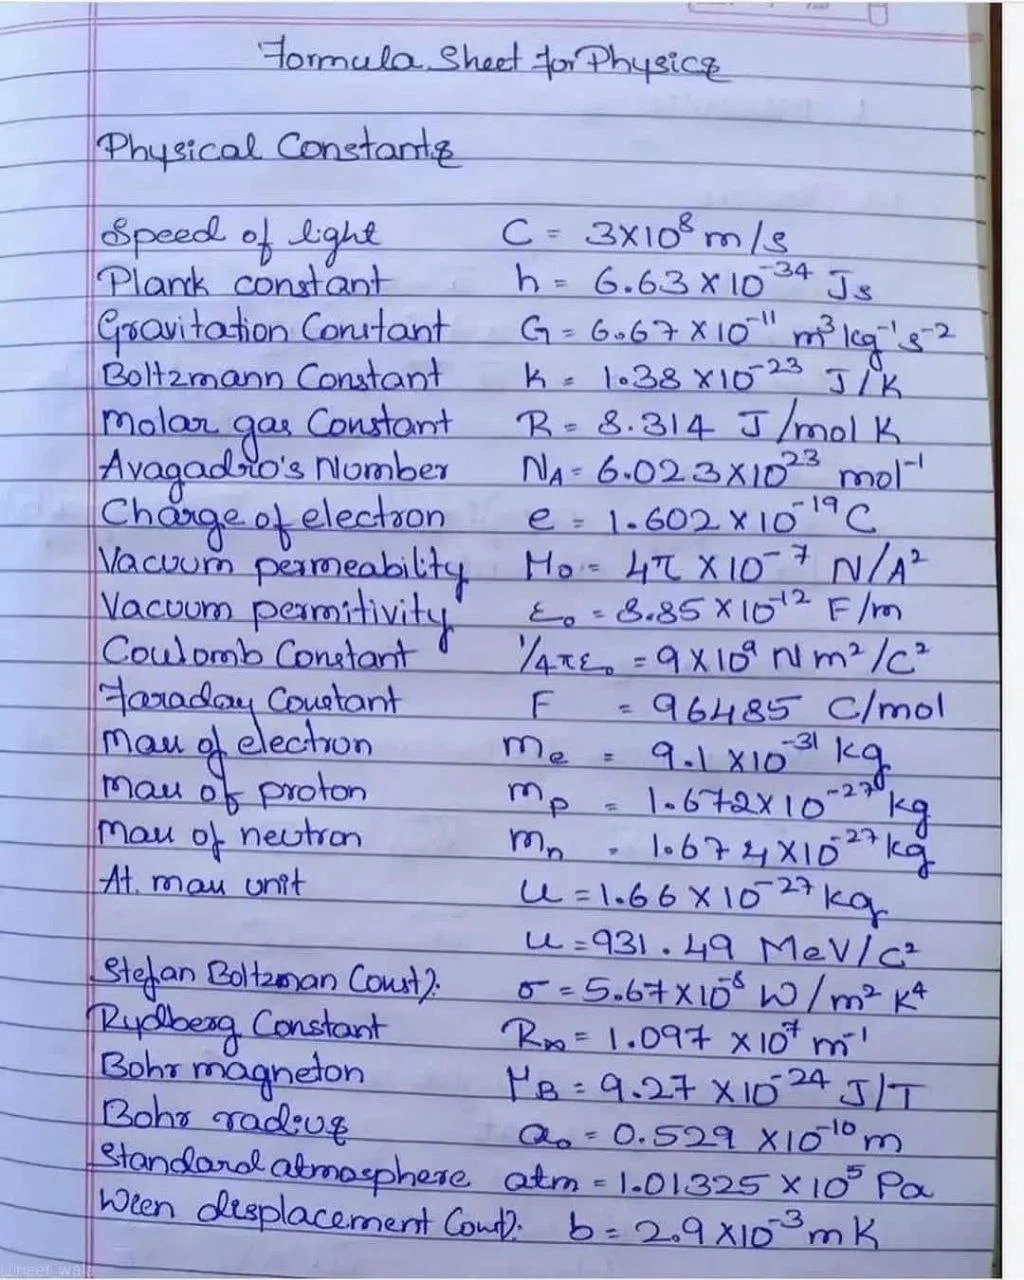 Formula Sheet for Physics
Physical Constants
Speed of light C = 3×10⁸ m/s
Plank constant h = 6.63 × 10⁻³⁴ Js
Gravitation Constant G = 6.67 × 10⁻¹¹ m³ kg⁻¹ s⁻²
Boltzmann Constant k = 1.38 × 10⁻²³ J/K
Molar gas Constant R = 8.314 J/mol K
Avagadro's Number N_A = 6.023×10²³ mol⁻¹
Charge of electron e = 1.602 × 10⁻¹⁹ C
Vacuum permeability μ₀ = 4π × 10⁻⁷ N/A²
Vacuum permitivity ε₀ = 8.85 × 10⁻¹² F/m
Coulomb Constant 1/4πε₀ = 9 × 10⁹ N m²/C²
Faraday Constant F = 96485 C/mol
Mass of electron mₑ = 9.1 × 10⁻³¹ kg
Mass of proton mₚ = 1.672 × 10⁻²⁷ kg
Mass of neutron mₙ = 1.674 × 10⁻²⁷ kg
At. mass unit u = 1.66 × 10⁻²⁷ kg
u = 931.49 MeV/c²
Stefan Boltzman Const): σ = 5.67×10⁻⁸ W/m² K⁴
Rydberg Constant R∞ = 1.097 × 10⁷ m⁻¹
Bohr magneton μ_B = 9.27 × 10⁻²⁴ J/T
Bohr radius a₀ = 0.529 × 10⁻¹⁰ m
Standard atmosphere atm = 1.01325 × 10⁵ Pa
Ween displacement Const): b = 2.9 × 10⁻³ m K